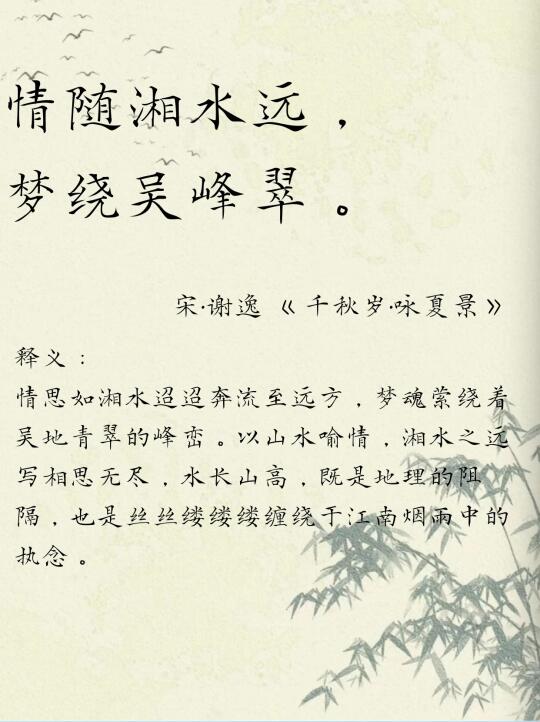 情随湘水远，
梦绕吴峰翠。
宋·谢逸《千秋岁·咏夏景》
释义：
情思如湘水迢迢奔流至远方，梦魂萦绕着
吴地青翠的峰峦。以山水喻情，湘水之远
写相思无尽，水长山高，既是地理的阻
隔，也是丝丝缕缕缕缠绕于江南烟雨中的
执念。